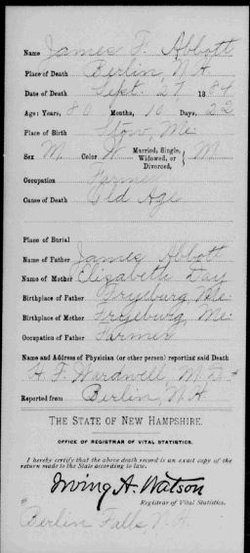 Name James F. Abbott
Place of Death Berlin, N.H.
Date of Death Sept. 27 1884
Age: Years, 80 Months, 10 Days, 22
Place of Birth Stow, Me.
Sex M. Color W. Married, Single, Widowed, or Divorced, M
Occupation Farmer
Cause of Death Old Age
Place of Burial
Name of Father James Abbott
Name of Mother Elizabeth Day
Birthplace of Father Fryeburg Me.
Birthplace of Mother Fryeburg Me.
Occupation of Father Farmer
Name and Address of Physician (or other person) reporting said Death
H. F. Wardwell, M.D.
Reported from Berlin, N.H.
THE STATE OF NEW HAMPSHIRE.
OFFICE OF REGISTRAR OF VITAL STATISTICS.
I hereby certify that the above death record is an exact copy of the return made to the State according to law.
Irving A. Watson
Registrar of Vital Statistics.
Berlin Falls N.H.